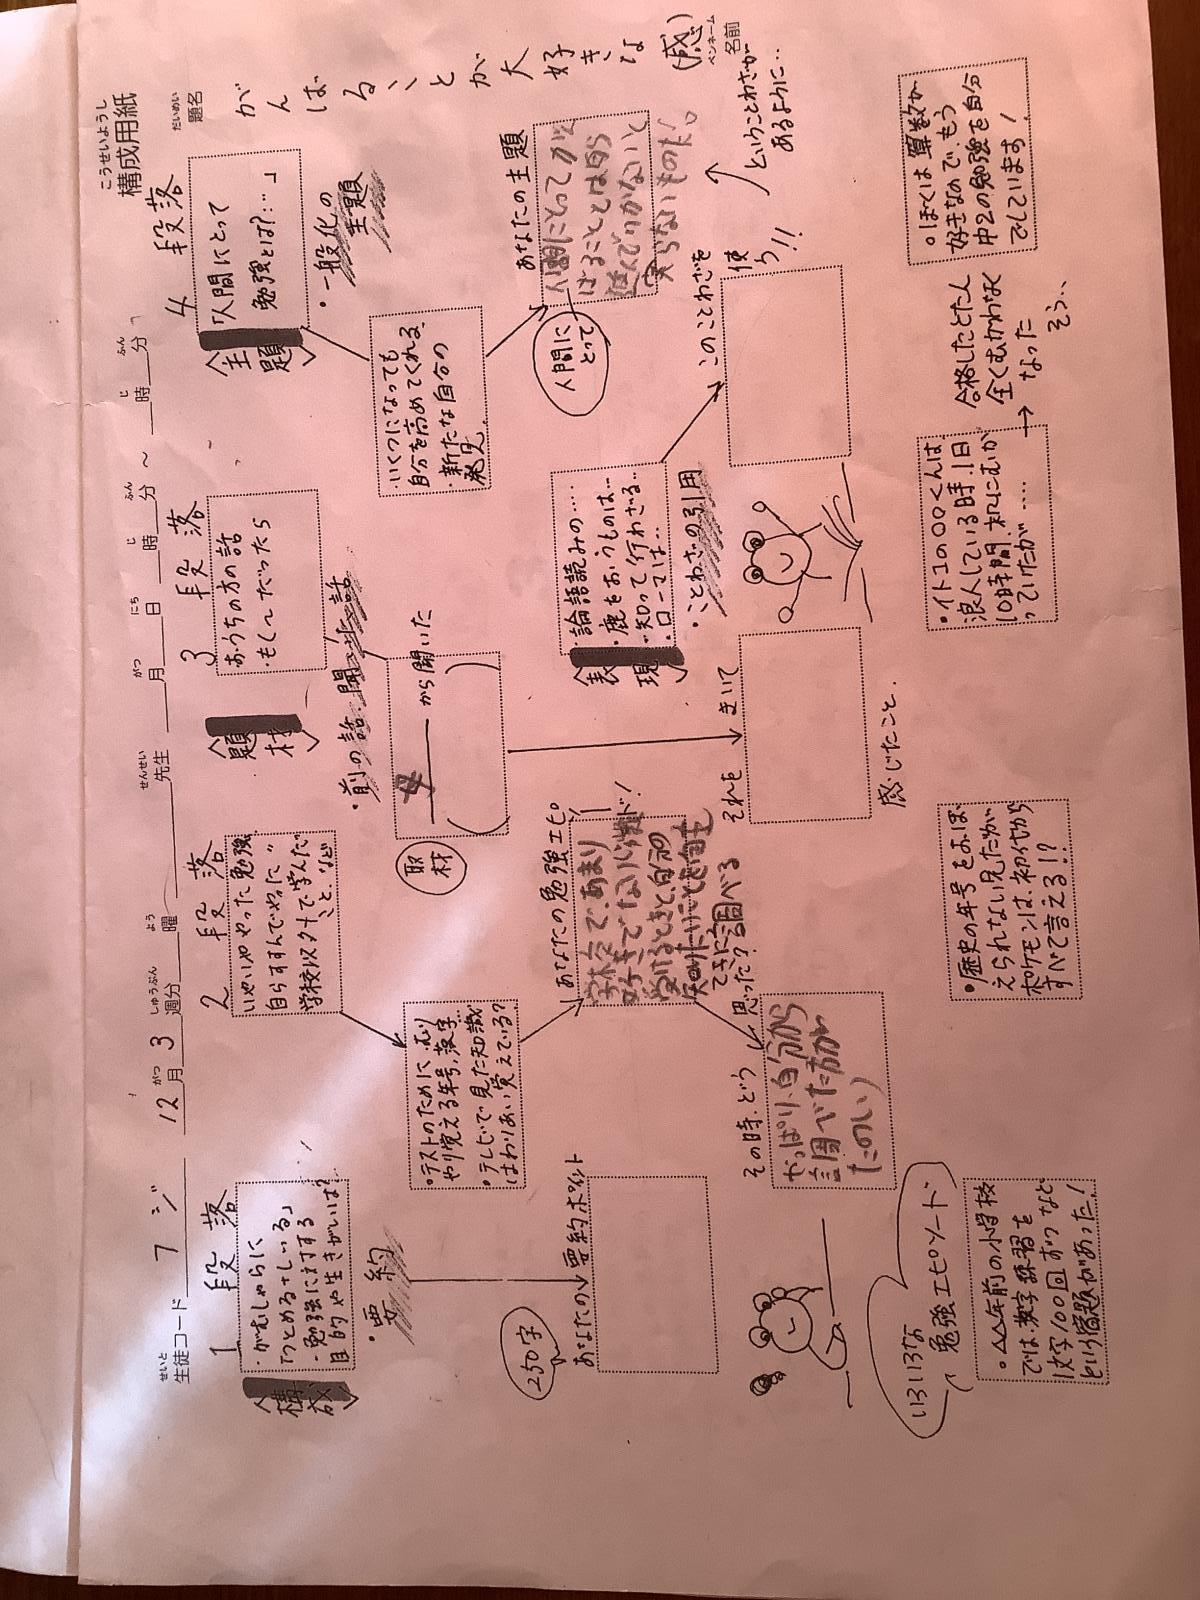 こうせいようし
構成用紙
だいめい
題名
がんばることが大好きな(感)
ペンネーム
名前
せいと
生徒コード 7 ジ 12月3週分 曜 先生 月 日 時 分 ~ 時 分
1 段落
〈構成〉
・がむしゃらに
「つとめる+しいる」
・勉強に対する
目的や生きがいは?
・要約
250字
あなたの要約ポイント
2 段落
いやいややった勉強
自らすすんでやった〃
学校以外で学んだ
こと、など
・テストのために、むり
やり覚える年号、漢字
・テレビで見た知識
はわりあい覚えている?
あなたの勉強エピソード!
その時、どう思った?
やっぱり、自分から
調べた方が
たのしい)
3 段落
〈題材〉
おうちの方の話
・もし~だったら
・前の話・聞いた話
取材
母 から聞いた
それをきいて
感じたこと。
4 段落
〈主題〉
「人間にとって
勉強とは?…」
・一般化の主題
・いくつになっても
自分を高めてくれる
・新たな自分の
発見
人間にとって
あなたの主題
人間にとってがん
ばることとは自ら
進んでいかないと
実らないものだ。
〈表現〉
・論語読みの‥‥
・鹿をおうものは…
・知って行わざる…
・ローマは…
・ことわざの引用
このことわざを
使う!!
ということわざが
あるように‥
いろいろな
勉強エピソード
・△△年前の小学校
では漢字練習を
1文字100回ずつなど
という宿題があった!
・歴史の年号をおぼ
えられない兄だが
ポケモンは、初代から
すべて言える!?
・イトコの〇〇くんは
浪人している時、1日
10時間、机にむか
っていたが‥‥
→
合格したとたん
全くむかわなく
なった
そう‥
・ぼくは算数が
好きなので、もう
中2の勉強を自分
でしています!